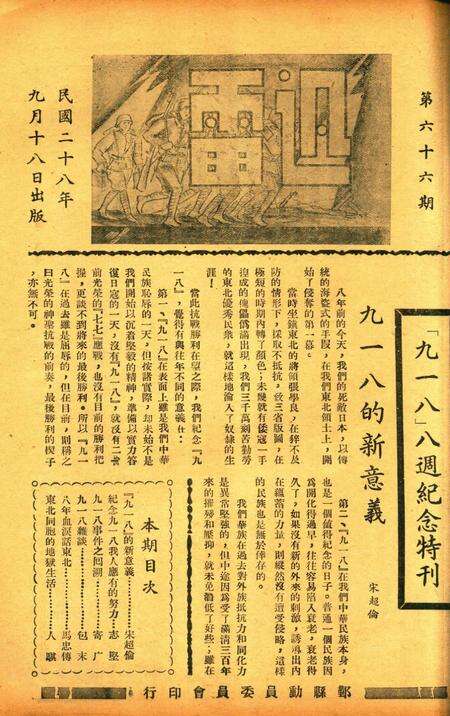 第六十六期
迅雷
民國二十八年
九月十八日出版
「九一八」八週紀念特刊
九一八的新意義
宋超倫
八年前的今天,我們的死敵日本,以傳
統的海盜式的手段,在我們東北領土上,開
始了侵奪的第一幕。
當時坐鎮東北的將領張學良,在猝不及
防的情形下,採取不抵抗,致三省版圖,在
極短的時期內轉了顏色;未幾就有倭寇一手
造成的傀儡僞滿出現,我們三千萬刻苦勤勞
的東北優秀民衆,就這樣地淪入了奴隸的生
涯!
當此抗戰勝利在望之際,我們紀念『九
一八』,覺得有與往年不同的意義在:
第一、『九一八』在表面上雖是我們中華
民族恥辱的一天,但按諸實際,却未始不是
我們開始以沉着堅毅的精神,準備以實力答
復日寇的一天,沒有『九一八』,就沒有二年
前光榮的『七七』應戰,也沒有目前的勝利把
握,更談不到將來的最後勝利。所以『九一
八』在過去雖是屈辱的,但在目前,則稱之
曰光榮的神聖抗戰的前奏,最後勝利的楔子
,亦無不可。
第二、『九一八』在我們中華民族本身,
也是一個值得紀念的日子。普通一個民族因
爲開化得過早,往往容易陷入衰老,衰老得
久了,如果沒有新的外來的刺激,誘導出內
在蘊蓄的力量,則縱然沒有遭受侵略,這樣
的民族也是無於倖存的。
我們華族在過去對外族抵抗力和同化力
是異常堅強的,但中途因爲受了滿淸三百年
來的摧殘和壓抑,就未免澈低了好些;雖在
本期目次
『九一八』的新意義…………宋超倫
紀念九一八我人應有的努力…志堅
九一八事件之回溯…………寄廣
九一八雜談…………包末
八年血淚話東北………馬忠傳
東北同胞的地獄生活………人騏
鄞縣動員委員會印行